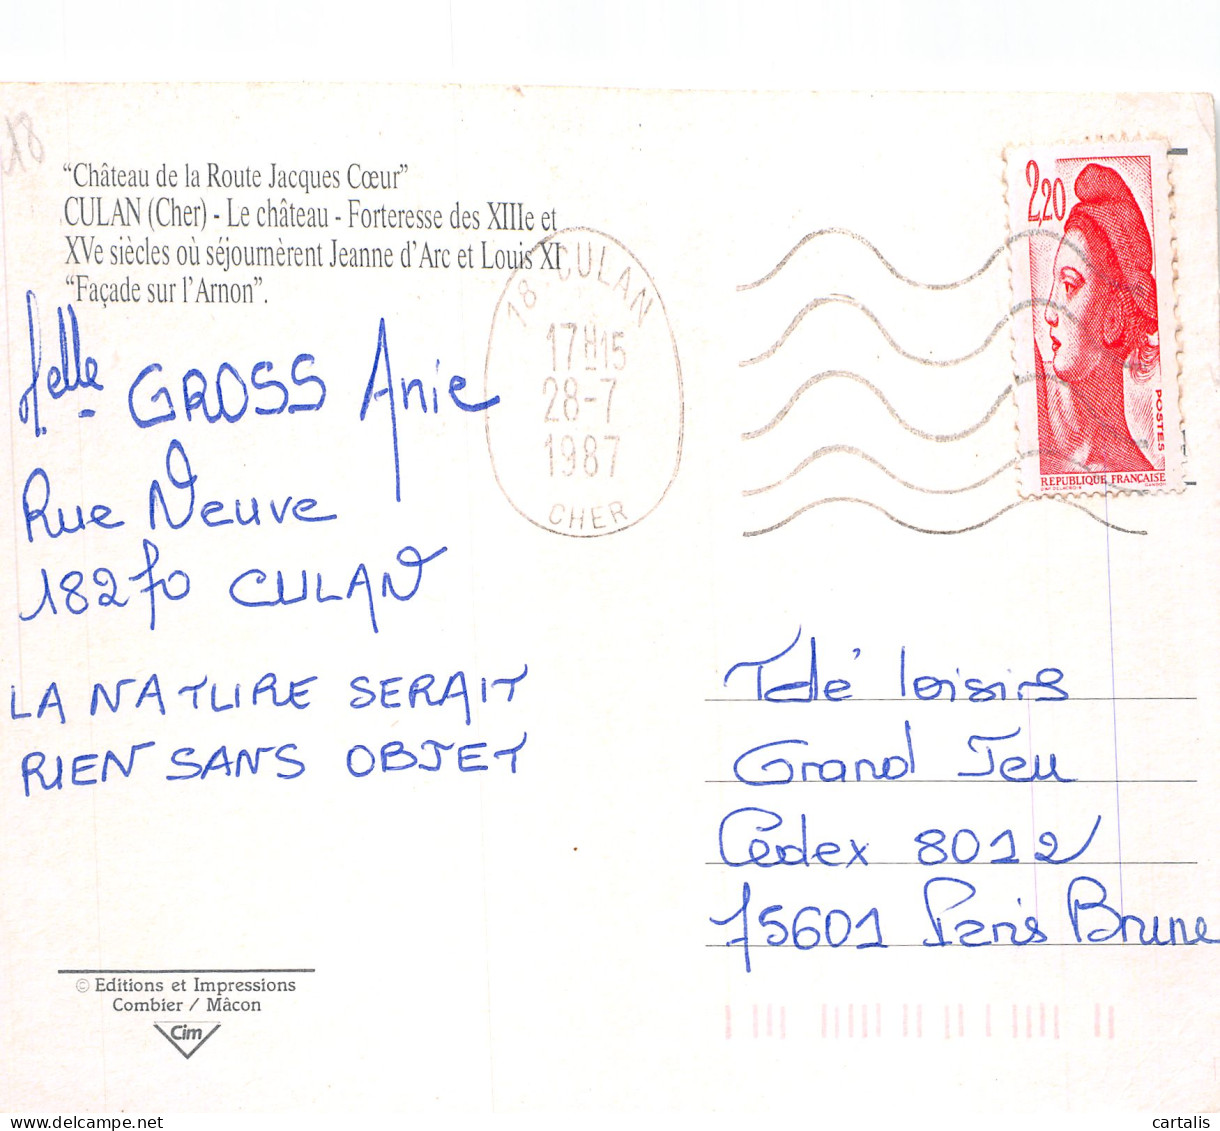 18
"Château de la Route Jacques Cœur"
CULAN (Cher) - Le château - Forteresse des XIIIe et
XVe siècles où séjournèrent Jeanne d'Arc et Louis XI
"Façade sur l'Arnon".
18 - CULAN
17H15
28-7
1987
CHER
2,20
POSTES
REPUBLIQUE FRANÇAISE
Melle GROSS Anie
Rue Neuve
18270 CULAN
LA NATURE SERAIT
RIEN SANS OBJET
Télé loisirs
Grand Jeu
Cédex 8012
75601 Paris Brune
© Editions et Impressions
Combier / Mâcon
Cim
delcampe.net
cartalis